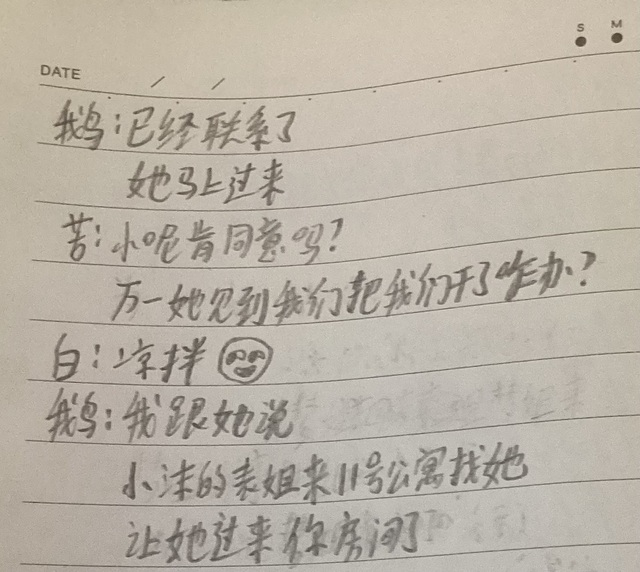 S M
DATE / /
鹅：已经联系了
她马上过来
苦：小呢肯同意吗？
万一她见到我们把我们开了咋办？
白：凉拌
鹅：我跟她说
小沫的表姐来11号公寓找她
让她过来你房间了